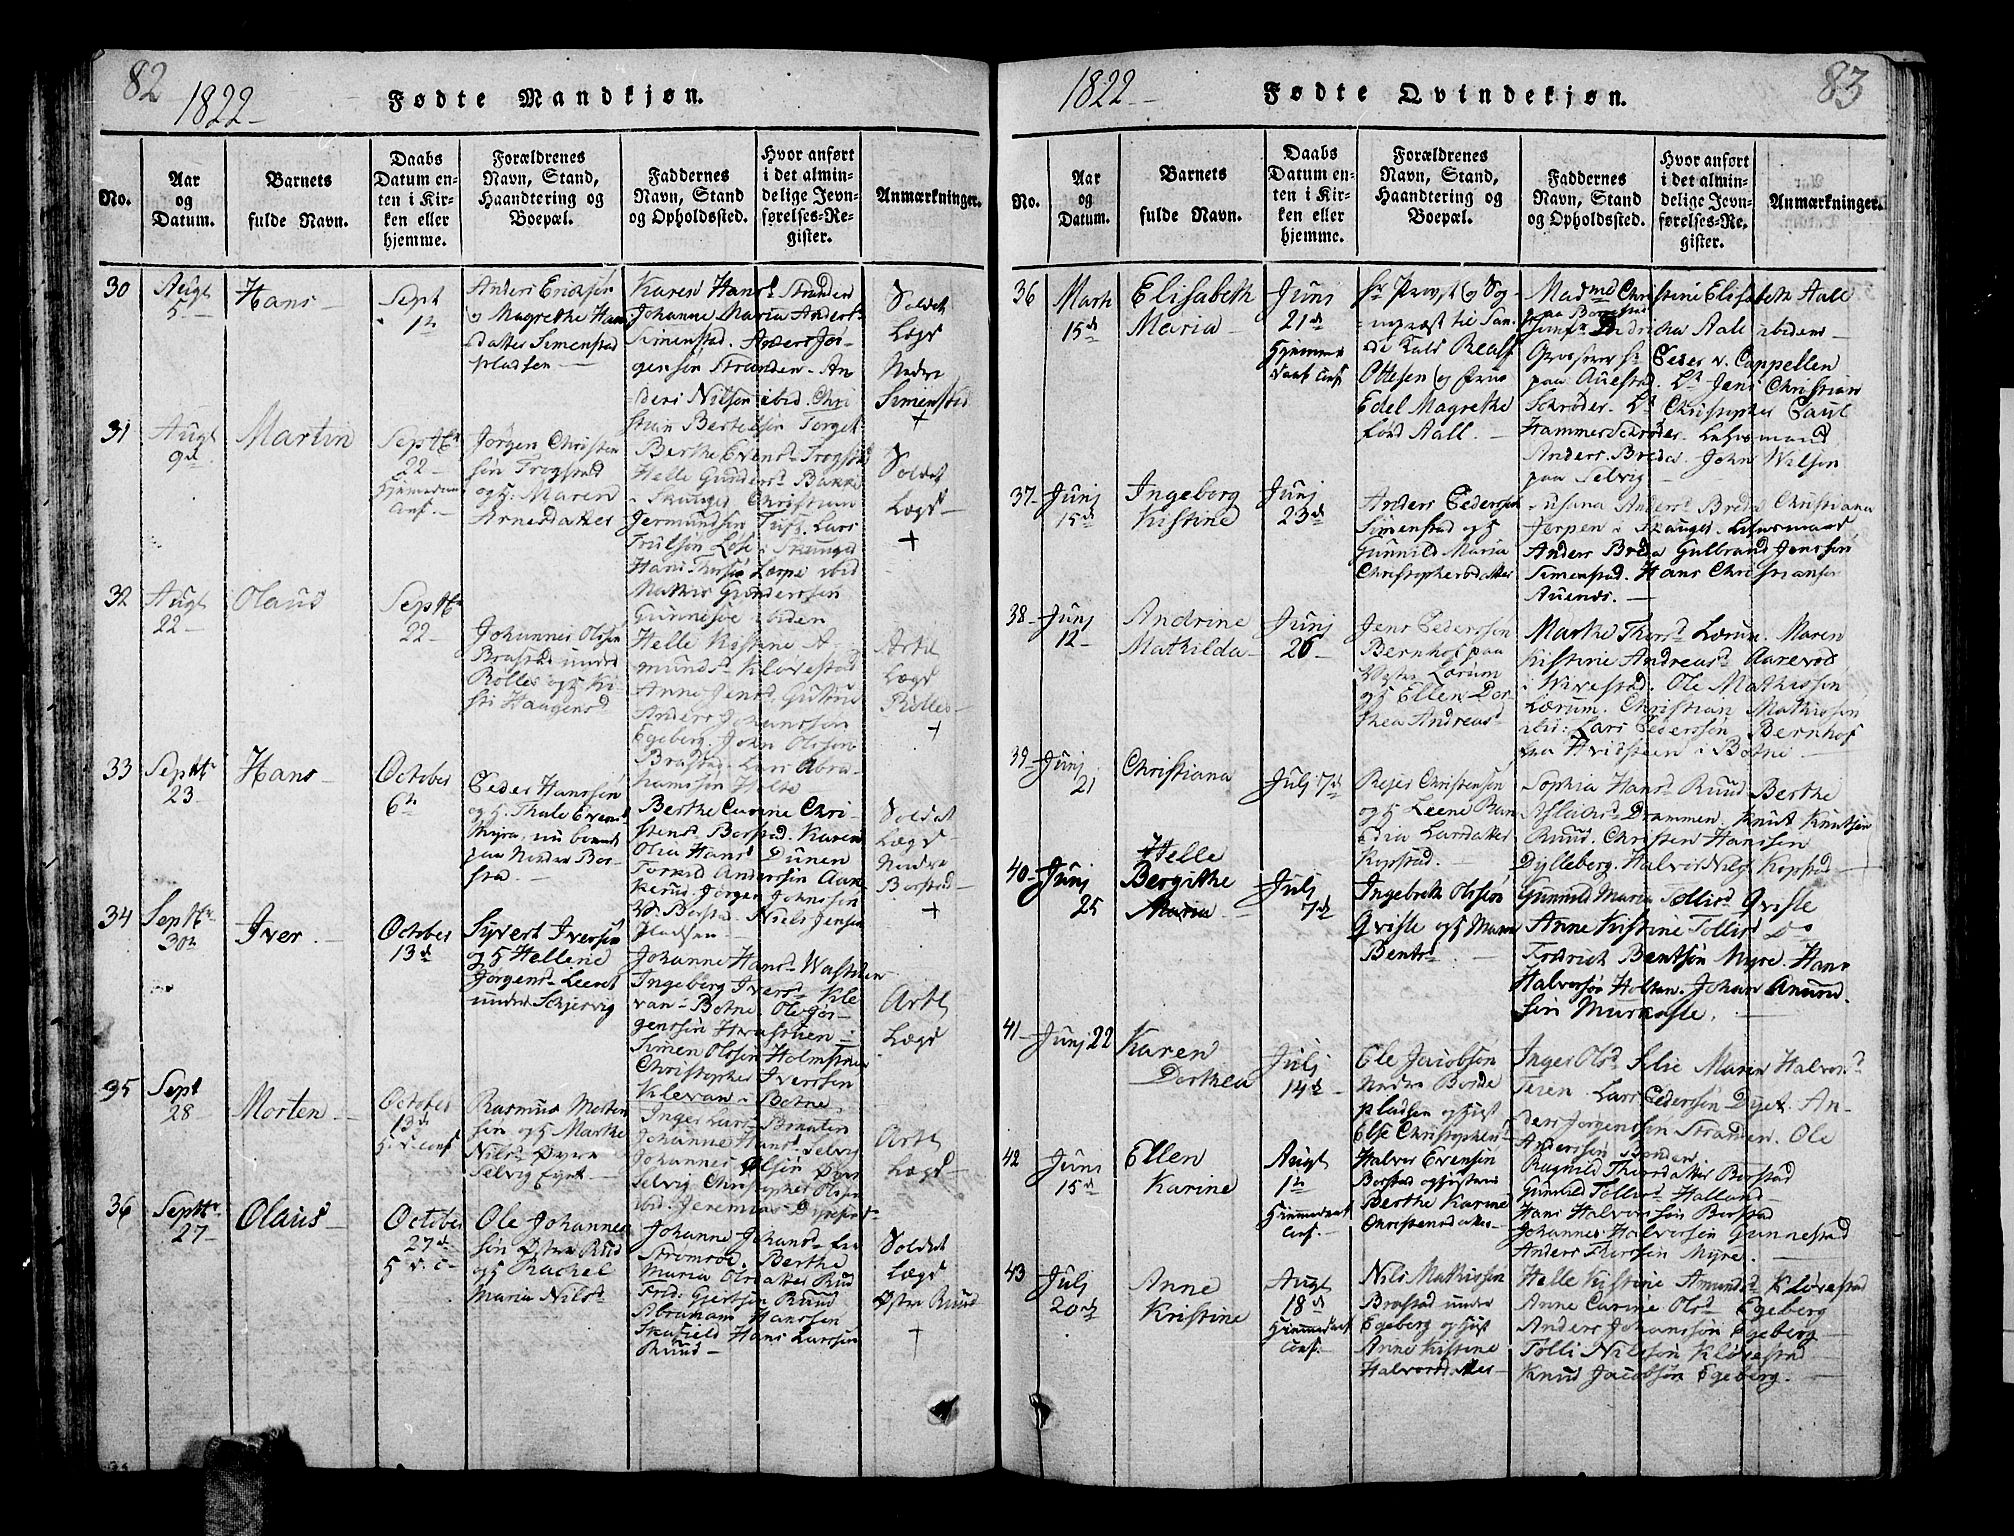 82
1822
Fødte Mandkjøn.
No.
Aar
og
Datum.
Barnets
fulde Navn.
Daabs
Datum en-
ten i Kir-
ken eller
hjemme.
Forældrenes
Navn, Stand,
Haandtering og
Boepæl.
Faddernes
Navn, Stand
og Opholdssted.
Hvor anført
i det almin-
delige Jevn-
førelses-Re-
gister.
Anmærkninger.
30
Augt
5
Hans
Sept
1te
Anders Ericksøn
og Magrethe Hans
datter Simenstad
pladsen
Karen Hansd Stranden
Johanne Maria Andersd
Simenstad. Anders Jør-
gensøn Stranden. An
ders Nilsøn ibid. Chri
stian Bertelsøn Torget
Soldet
Lægd
Nedre
Simenstad
+
31
Augt
9d
Martin
Septbr
22
Hjemmedaab
conf.
Jørgen Christen
søn Frogstad
og H: Maren
Arnesdatter
Berthe Evensd Frogstad
Helle Gundersd Bakke
i Skauger Christian
Jermundsøn Tuft. Lars
Trulsøn
Hans
Mathis Gunderssen
Soldet
Lægd
+
32
Augt
22
Olaus
Septbr
22
Johannes Olssen
Brastad under
Rolles og H Ki-
sti Haagensd
Helle Kistine A-
mundsd Klovestad
Anne Jensd
Anders Johanssen
Egeberg. John Olsson
Brastad. Lars Abra-
hamsøn Holte
Artl
Lægd
Rolles
+
33
Septbr
23
Hans
October
6te
Peder Hanssøn
og H. Thale Evensd
Myra, nu boende
paa Nedre Bor-
stad
Berthe Carine Chri-
stensd Borstad. Karen
Olia Hansd Dunen
Torkild Anderssøn Aak
kerud. Jørgen Johnssøn
V: Borstad. Niels Jensen
pladsen
Soldet
Lægd
Nedre
Borstad
+
34
Septbr
30te
Iver
October
13d
Syvert Iversøn
og H Hellene
Jørgensd Leeret
under Schjervig
Johanne Hansd
Ingeberg Iversd Kle
van Botne Ole Jør-
genssøn
Simen Olssøn Holmstrand
Christopher Iverssen
Klevan Botne
Artl
Lægd
35
Sept
28
Morten
October
13d
H. D. conf
Rasmus Morten
søn og H Marthe
Nilsd Øvre
Selvig Eget
Inger Larsd Braaten
Johanne Hansd Selvig
Johannes Olsøn
Selvig Christopher Olssøn
ibid. Jeremias
Artl
Lægd
36
Septbr
27
Olaus
October
27d
H D. C
Ole Johannes
søn Østre Rud
og H Rachel
Maria Nilsd
Johanne Johansd fra
Stromrod. Berthe
Maria Olsdatter Rud
Frid: Gjertsøn Ruud
Abraham Hanssen
Skafield Hans Larssøn
Ruud
Soldet
Lægd
Østre Ruud
+
83
1822
Fødte Qvindekjøn.
No.
Aar
og
Datum.
Barnets
fulde Navn.
Daabs
Datum en-
ten i Kir-
ken eller
hjemme.
Forældrenes
Navn, Stand,
Haandtering og
Boepæl.
Faddernes
Navn, Stand
og Opholdssted.
Hvor anført
i det almin-
delige Jevn-
førelses-Re-
gister.
Anmærkninger.
36
Marts
15d
Elisabeth
Maria
Junj
21d
Hjemme
daab conf
Hr Provst og Sog-
nepræst til San-
de Kals Realf
Ottesen og Frue
Edel Magrethe
fød Aall.
Madme Christine Elisabeth Aall
paa Borgestad
Jomfr Aall ibidem
Grosserer Hr Peder v. Cappellen
paa Auestad. Lt Jens Christian
Schrøder. Lt Christopher Paul
Hammer Schrøder. Lehnsmand
Anders Breda John Wilson
paa Selvig
37
Junj
15d
Ingeborg
Kistine
Junj
23d
Anders Pedersøn
Simenstad og H
Gunnild Maria
Christophersdatter
Susana Andersd Breda Christiana
Jerpen i Skauger. Lehnsmand
Anders Breda Gulbrand Jenssøn
Simenstad. Hans Christiansøn
Auenes.
38
Junj
12
Andrine
Mathilda
Junj
26
Jens Pederssøn
Bernhof paa
Vestre Lørum
og H Ellen Dor-
thea Andreasd
Marthe Thorsd Lærum. Maren
Kistine Andreasd Aarevod
Ole Mathissøn
Lærum. Christian Mathissøn
ibid: Lars Pederssøn Bernhof
fra Hvidsteen i Botne
39
Junj
21
Christiana
Julj 7d
Rejer Christensøn
og H Leene Ran
dia Larsdatter
Kopstad.
Sophia Hansd Ruud Berthe
Aslachsd Drammen. Knut Knutsøn
Ruud. Christen Hanssen
Dylleberg. Halvor Nilss Kopstad
40
Junj
25
Helle
Bergithe
Maria
Julj
7d
Ingebreth Olssøn
Qvisle og H Maren
Bentsd
Gunnild Maria Tollisd Qvisle
Anne Kistine Tollisd Do
Fredrich Bentsøn Myre. Hans
Halvorsøn Holtan. Johan Amund
søn
41
Junj 22
Karen
Dorthea
Julj
14d
Ole Jacobsøn
Nedre Borde
pladsen og Hust
Else Christophersd
Inger Olsd Maren Halvorsd
Lars Pederssøn Dyet. An-
ders Jørgenssøn Stranden. Ole
Anderssøn
42
Juni
15d
Ellen
Karine
Augt
1te
Hjemmedaab
conf.
Halvor Evensøn
Borstad og Hustrue
Berthe Karine
Christensdatter
Ragnild Thorsdatter Borstad
Gunnild Tollisd Halland
Hans Halvorssøn Borstad
Johannes Halvorssøn Gunnestad
Anders Thorssøn Myre.
43
Julj
20d
Anne
Kristine
Augt
18d
Hjemmedaab
conf.
Nils Mathissøn
Brastad under
Egeberg og Hust
Anne Kistine
Halvorsdatter
Helle Kistine Amundsd Kløvestad
Anne Carine Olsd Egeberg
Anders Johanssøn Egeberg
Tolli Nilssøn Kløvestad
Knud Jacobssøn Egeberg.